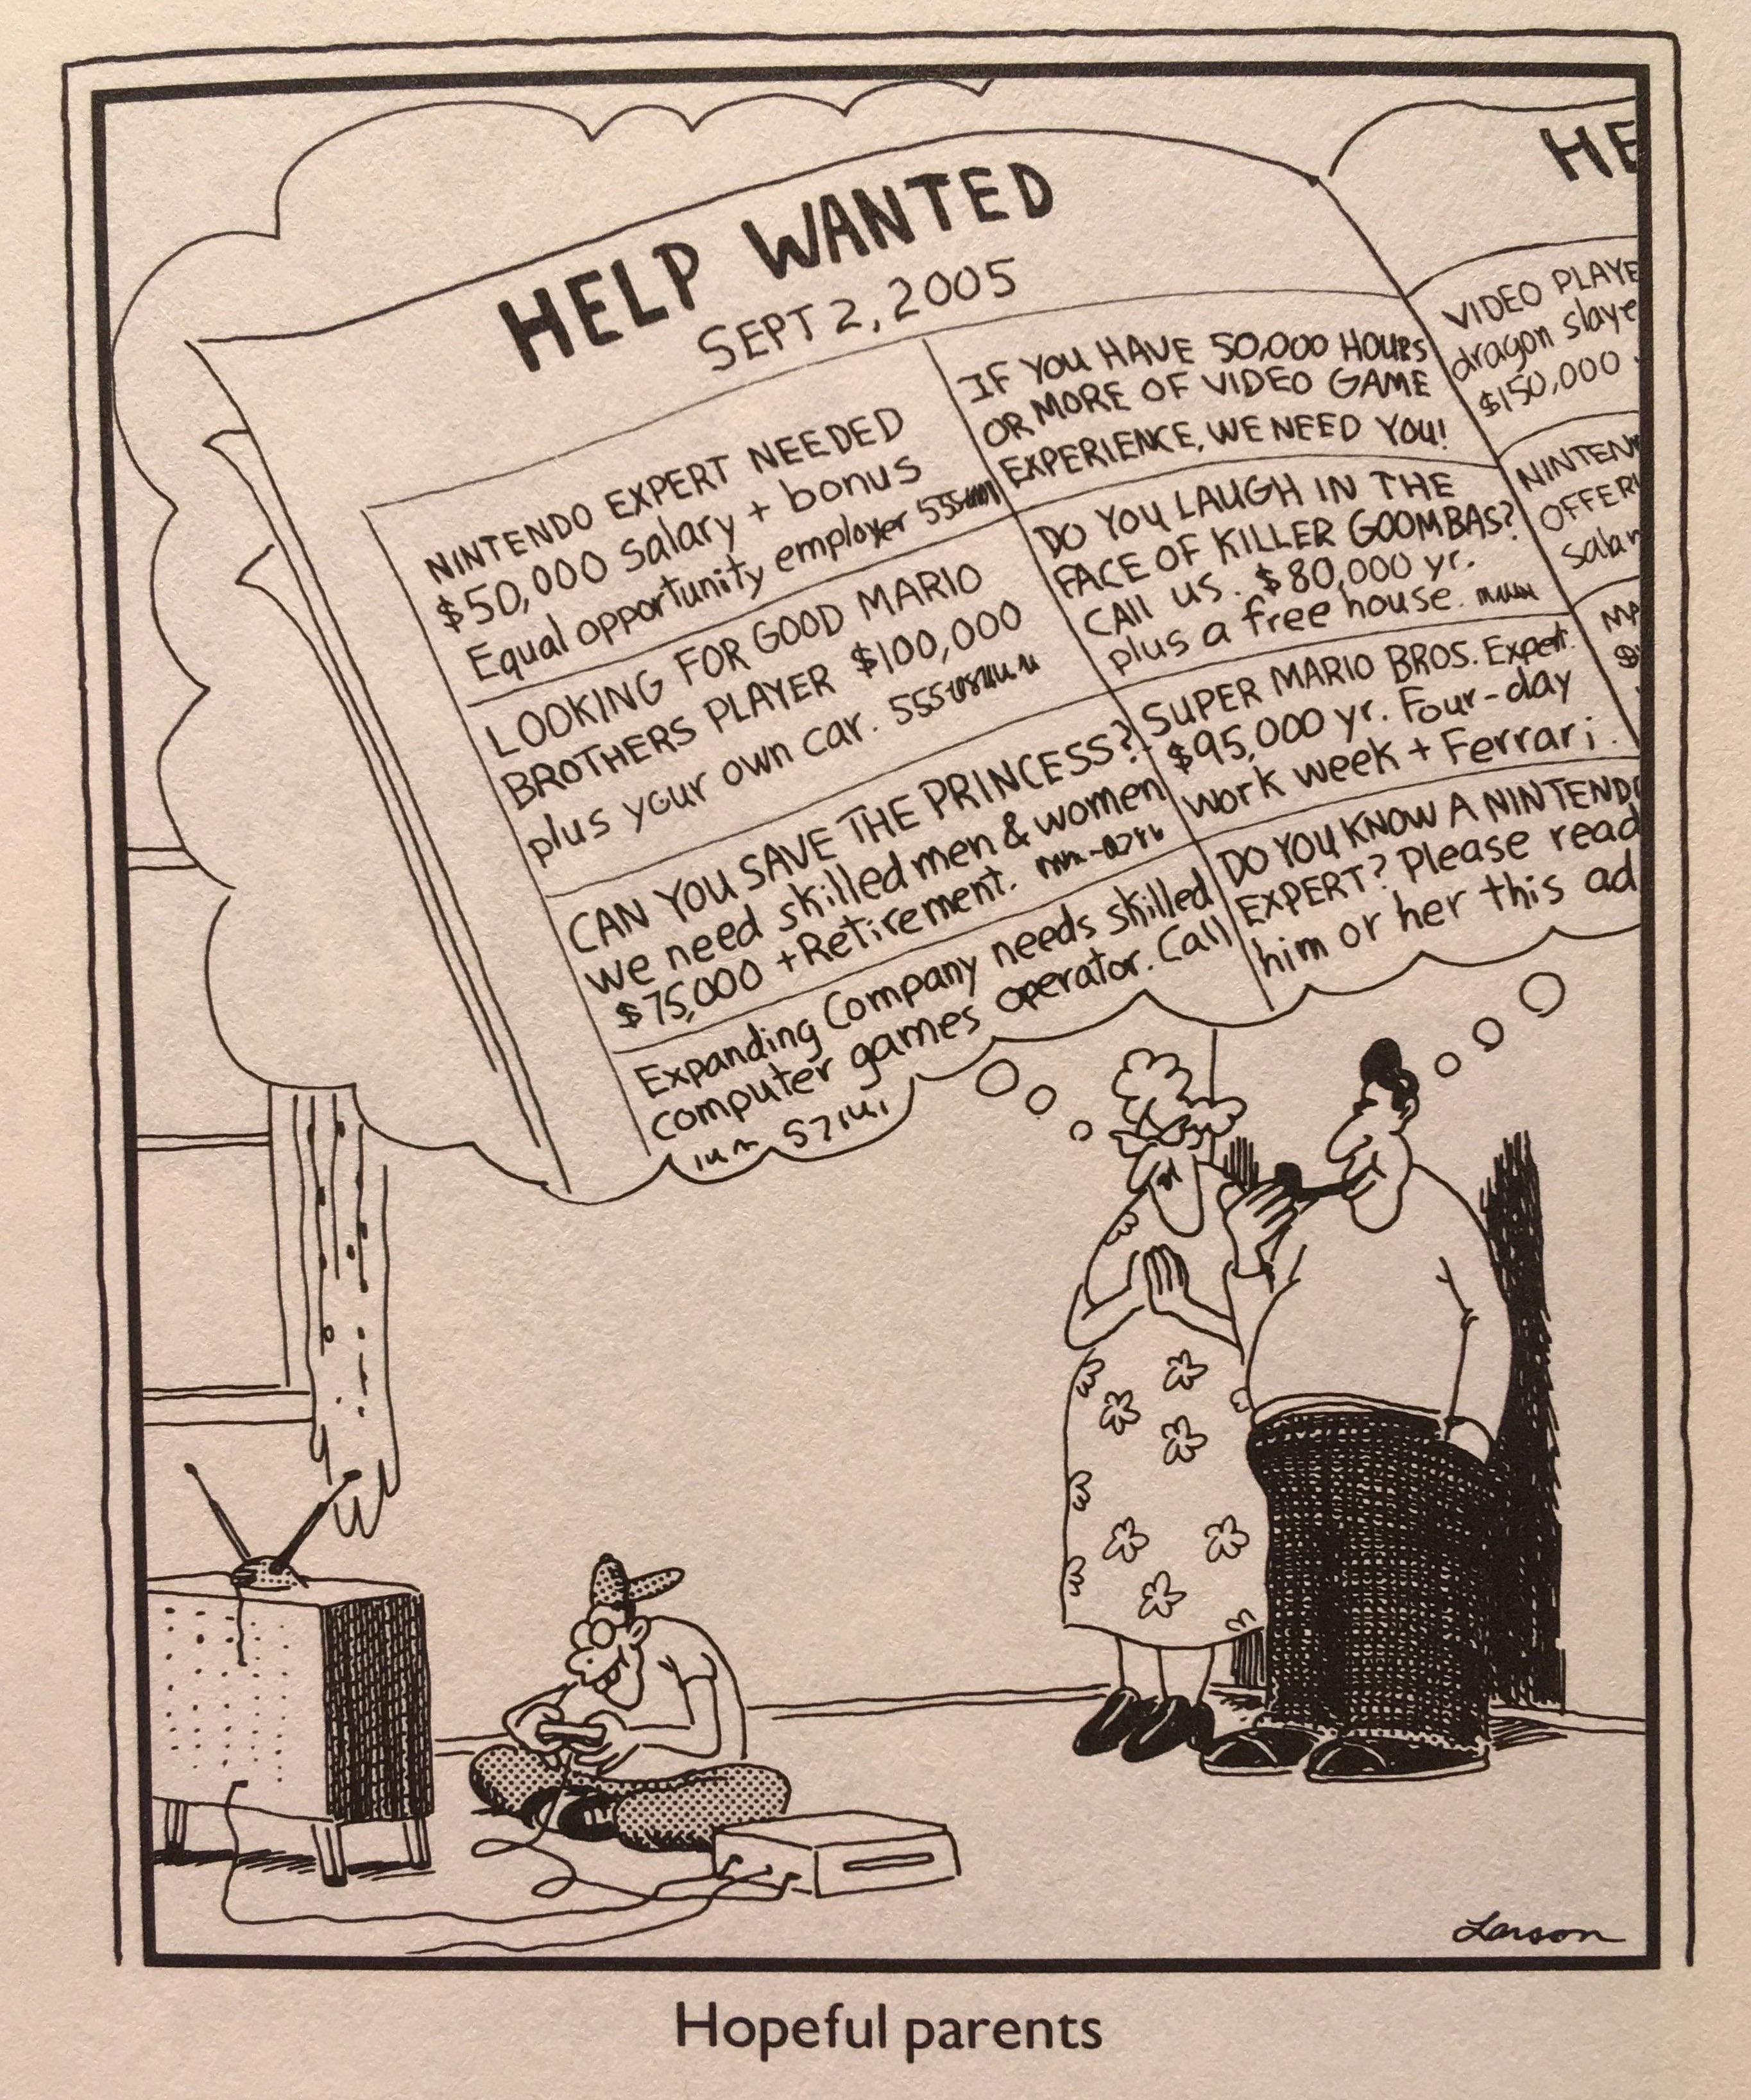 HELP WANTED
SEPT 2, 2005
NINTENDO EXPERT NEEDED
$50,000 salary + bonus
Equal opportunity employer 555
LOOKING FOR GOOD MARIO
BROTHERS PLAYER $100,000
plus your own car. 555
CAN YOU SAVE THE PRINCESS?
We need skilled men & women
$75,000 + Retirement.
Expanding Company needs skilled
computer games operator. Call
IF YOU HAVE 50,000 HOURS
OR MORE OF VIDEO GAME
EXPERIENCE, WE NEED YOU!
DO YOU LAUGH IN THE
FACE OF KILLER GOOMBAS?
CALL us. $80,000 yr.
plus a free house.
SUPER MARIO BROS. Expert.
$95,000 yr. Four-day
work week + Ferrari.
DO YOU KNOW A NINTENDO
EXPERT? Please read
him or her this ad
HE
VIDEO PLAYE
dragon slaye
$150,000
NINTEN
OFFERI
Salar
MA
$
Larson
Hopeful parents